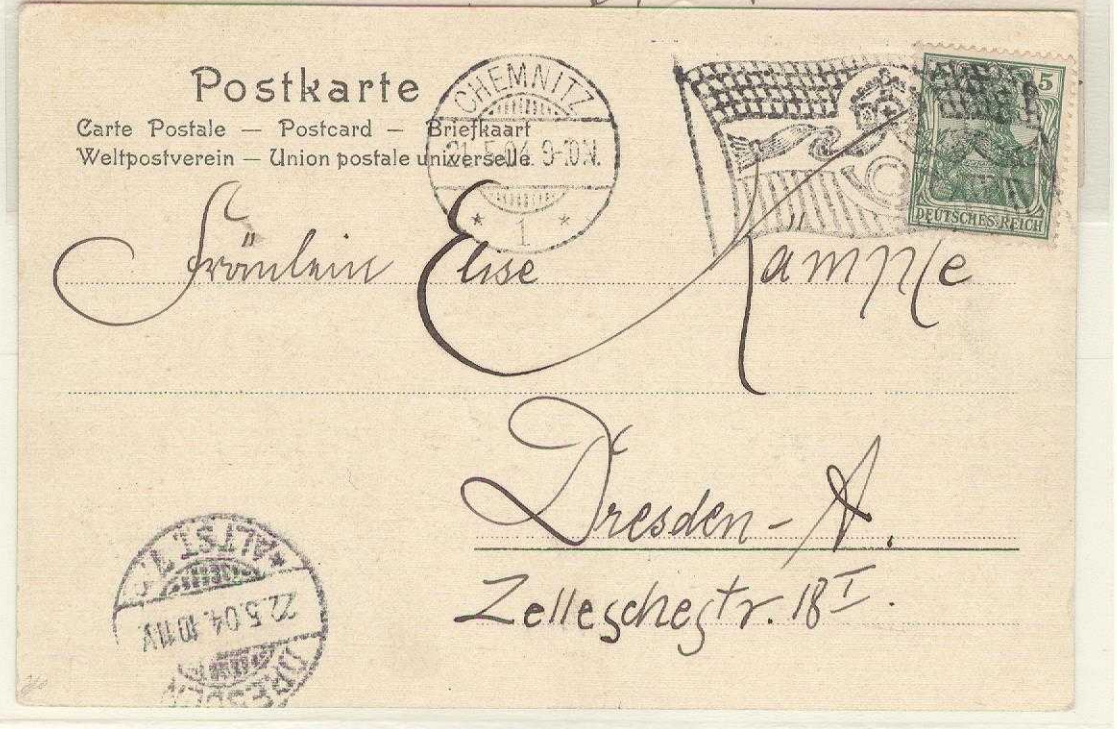 Postkarte
Carte Postale — Postcard — Briefkaart
Weltpostverein — Union postale universelle
CHEMNITZ
21.5.04. 9-10.N.
* 1 *
5
DEUTSCHES REICH
Fräulein Elise Kämpfe
Dresden-A.
Zelleschestr. 18 I.
DRESDEN
22.5.04. 10 11 V.
*ALTST. 1